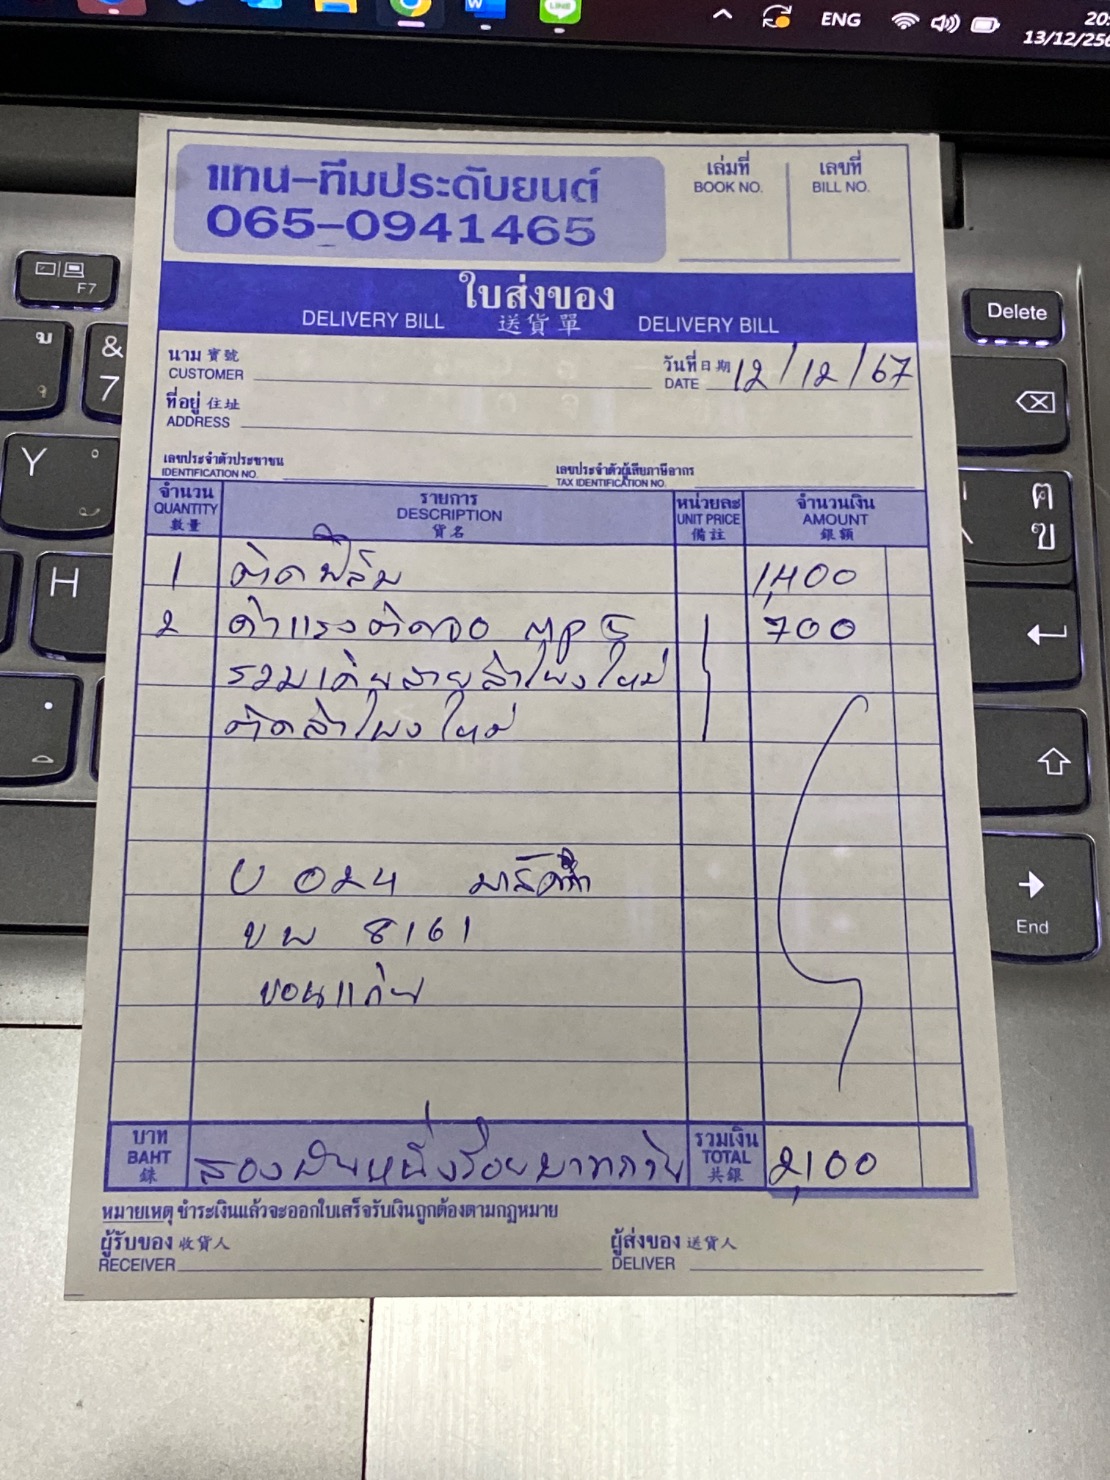 ENG
20:
13/12/256
แทน-ทีมประดับยนต์
065-0941465
เล่มที่
BOOK NO.
เลขที่
BILL NO.
ใบส่งของ
DELIVERY BILL 送貨單 DELIVERY BILL
นาม 寶號
CUSTOMER
วันที่ 日期
DATE 12/12/67
ที่อยู่ 住址
ADDRESS
เลขประจำตัวประชาชน
IDENTIFICATION NO.
เลขประจำตัวผู้เสียภาษีอากร
TAX IDENTIFICATION NO.
จำนวน
QUANTITY
數量
รายการ
DESCRIPTION
貨名
หน่วยละ
UNIT PRICE
備註
จำนวนเงิน
AMOUNT
銀額
1 ติดฟิล์ม 1,400
2 ค่าแรงติดจอ MP5 700
รวมเดินสายลำโพงใหม่
ติดลำโพงใหม่
024
ขพ 8161
ขอนแก่น
บาท
BAHT
銖
สองพันหนึ่งร้อยบาทถ้วน
รวมเงิน
TOTAL
共銀
2,100
หมายเหตุ ชำระเงินแล้วจะออกใบเสร็จรับเงินถูกต้องตามกฎหมาย
ผู้รับของ 收貨人
RECEIVER
ผู้ส่งของ 送貨人
DELIVER
F7
&
7
Y
H
Delete
ฅ
ฃ
End